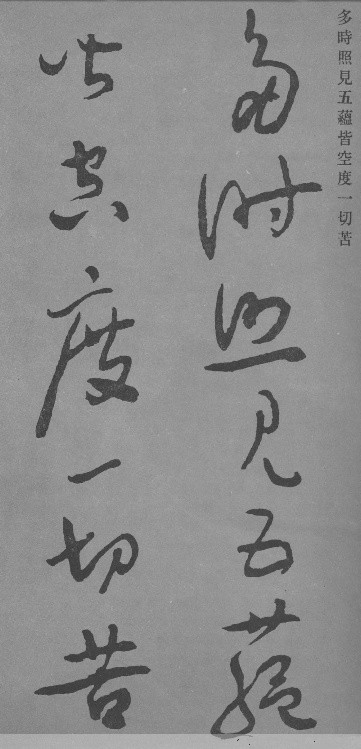 多時照見五蘊皆空度一切苦
多時照見五蘊
皆空度一切苦